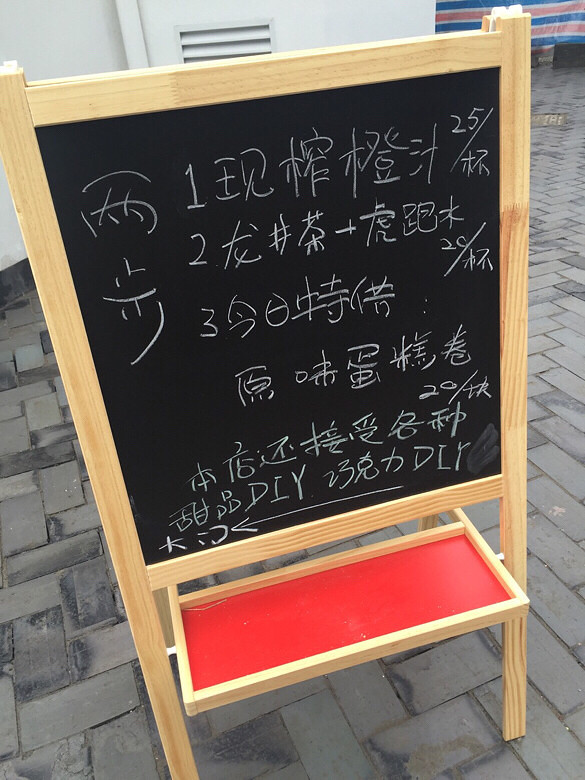 两步
1现榨橙汁 25/杯
2龙井茶+虎跑水 20/杯
3今日特供：
原味蛋糕卷
20/块
本店还接受各种
甜品DIY 巧克力DIY
大门←